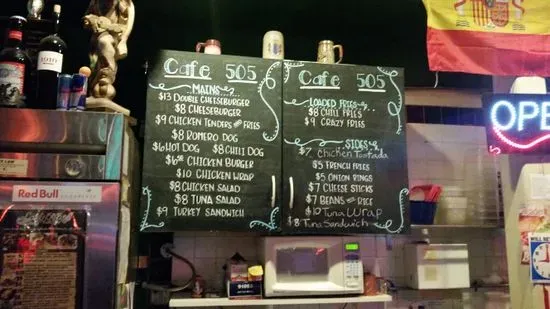 Cafe 505
MAINS
$13 DOUBLE CHEESEBURGER
$8 CHEESEBURGER
$9 CHICKEN TENDERS AND FRIES
$8 ROMERO DOG
$6 HOT DOG $8 CHILI DOG
$6.50 CHICKEN BURGER
$10 CHICKEN WRAP
$8 CHICKEN SALAD
$8 TUNA SALAD
$9 TURKEY SANDWICH
Cafe 505
LOADED FRIES
$8 CHILI FRIES
$9 CRAZY FRIES
SIDES
$7 Chicken Tostada
$5 FRENCH FRIES
$5 ONION RINGS
$7 CHEESE STICKS
$7 BEANS and RICE
$10 Tuna Wrap
$8 Tuna Sandwich
OPE
Red Bull